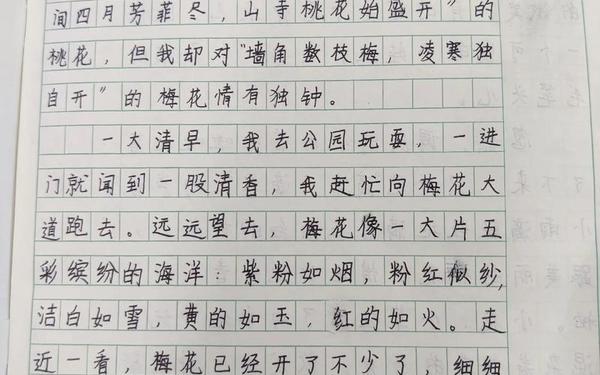 间四月芳菲尽，山寺桃花始盛开”的
桃花，但我却对“墙角数枝梅，凌寒独
自开”的梅花情有独钟。
一大清早，我去公园玩耍，一进
门就闻到一股清香，我赶忙向梅花大
道跑去。远远望去，梅花像一大片五
彩缤纷的海洋：紫粉如烟，粉红似纱，
洁白如雪，黄的如玉，红的如火。走
近一看，梅花已经开了不少了，细细